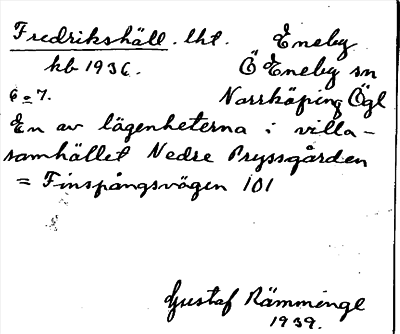 Fredrikshäll. lht. Eneby
kb 1936. Ö Eneby sn
6 o 7. Norrköping Ögl
En av lägenheterna i villa-
samhället Nedre Pryssgården
= Finspångsvägen 101
Gustaf Rämminge
1939.